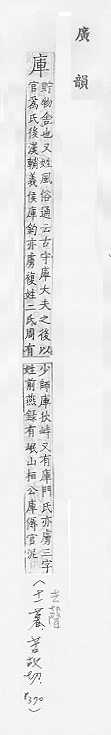 廣韻
庫
貯物舍也又姓風俗通云古守庫大夫之後以
官為氏後漢輔義侯庫鈞亦虜複姓二氏周有
少師庫狄峙又有庫門氏亦虜三字
姓前燕錄有岷山桓公庫傉官泥
去聲
(十一暮 苦故切 P370)